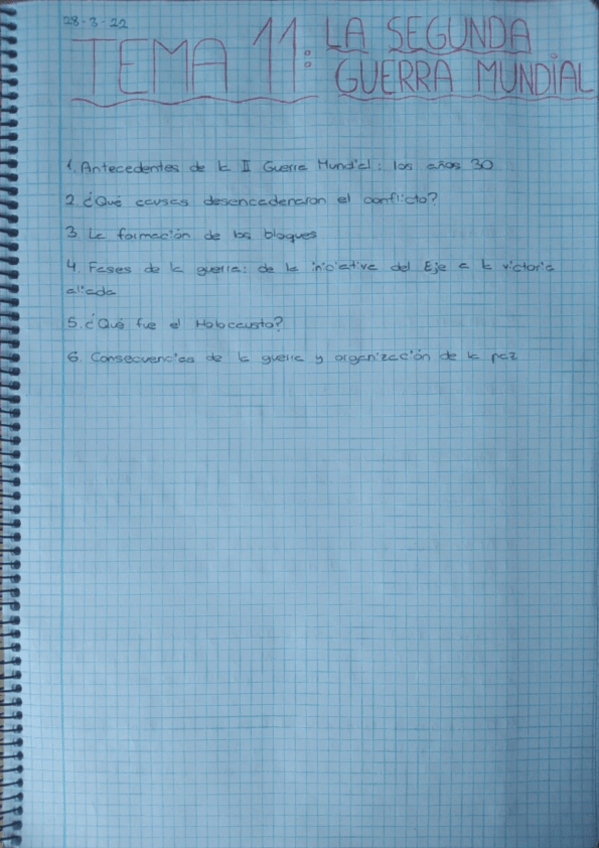 28-3-22
TEMA 11: LA SEGUNDA
GUERRA MUNDIAL
1. Antecedentes de la II Guerra Mundial: los años 30
2. ¿Qué causas desencadenaron el conflicto?
3. La formación de los bloques
4. Fases de la guerra: de la iniciativa del Eje a la victoria
aliada
5. ¿Qué fue el Holocausto?
6. Consecuencias de la guerra y organización de la paz